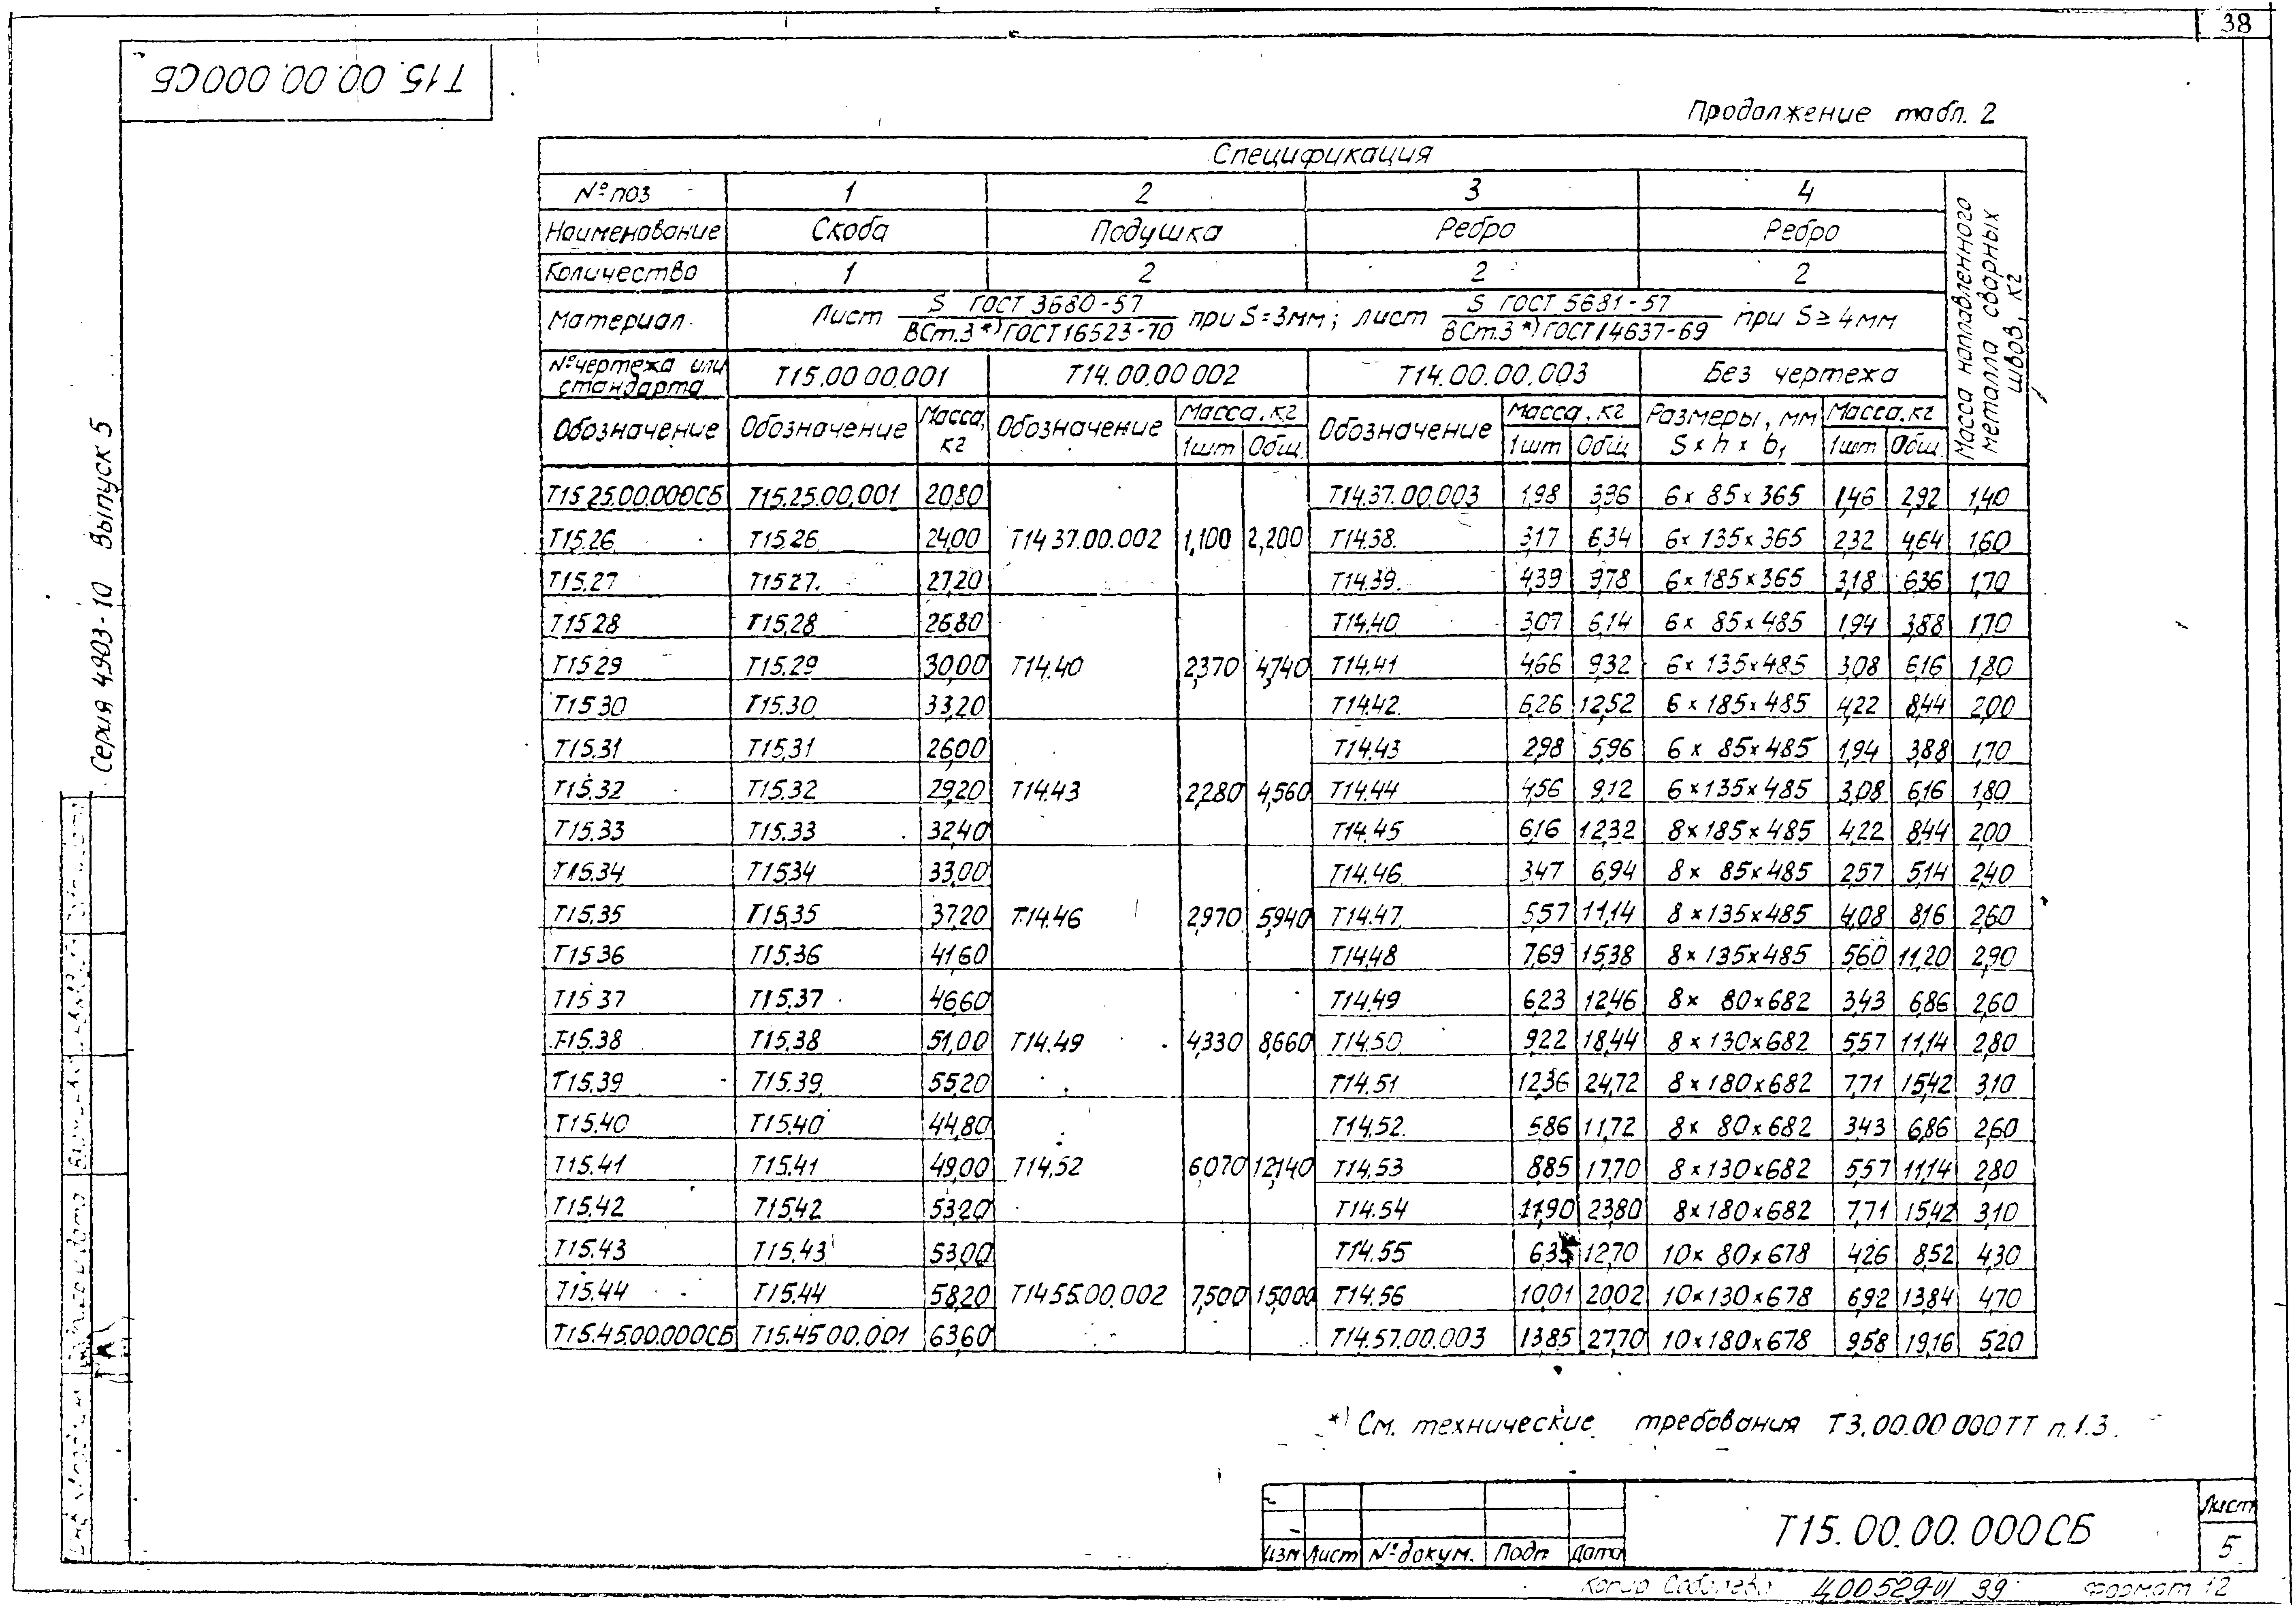 38
Т15.00.00.000СБ
Продолжение табл. 2
Спецификация
№ поз 1 2 3 4 Масса наплавленного металла сварных швов, кг
Наименование Скоба Подушка Ребро Ребро
Количество 1 2 2 2
Материал. Лист S ГОСТ 3680-57 / ВСт.3*) ГОСТ16523-70 при S=3мм; лист S ГОСТ 5681-57 / ВСт.3*) ГОСТ14637-69 при S≥4мм
№ чертежа или стандарта Т15.00 00.001 Т14.00.00 002 Т14.00.00.003 Без чертежа
Обозначение Обозначение Масса, кг Обозначение Масса, кг 1шт Общ. Обозначение Масса, кг 1шт Общ Размеры, мм S×h×b₁ Масса, кг 1шт Общ.
Т15.25.00.000СБ Т15.25.00.001 20,80 Т14.37.00.003 1,98 3,96 6×85×365 1,46 2,92 1,40
Т15.26 Т15.26 24,00 Т14 37.00.002 1,100 2,200 Т14.38. 3,17 6,34 6×135×365 2,32 4,64 1,60
Т15.27 Т15 27. 27,20 Т14.39. 4,39 9,78 6×185×365 3,18 6,36 1,70
Т15 28 Т15.28 26,80 Т14.40 3,07 6,14 6×85×485 1,94 3,88 1,70
Т15 29 Т15.29 30,00 Т14.40 2,370 4,740 Т14.41 4,66 9,32 6×135×485 3,08 6,16 1,80
Т15 30 Т15.30 33,20 Т14.42. 6,26 12,52 6×185×485 4,22 8,44 2,00
Т15.31 Т15.31 26,00 Т14.43 2,98 5,96 6×85×485 1,94 3,88 1,70
Т15.32 Т15.32 29,20 Т14.43 2,280 4,560 Т14.44 4,56 9,12 6×135×485 3,08 6,16 1,80
Т15.33 Т15.33 32,40 Т14.45 6,16 12,32 8×185×485 4,22 8,44 2,00
Т15.34 Т15.34 33,00 Т14.46 3,47 6,94 8×85×485 2,57 5,14 2,40
Т15.35 Т15.35 37,20 Т.14.46 2,970 5,940 Т14.47. 5,57 11,14 8×135×485 4,08 8,16 2,60
Т15 36 Т15.36 41,60 Т14.48 7,69 15,38 8×135×485 5,60 11,20 2,90
Т15 37 Т15.37 46,60 Т14.49 6,23 12,46 8×80×682 3,43 6,86 2,60
Т15.38 Т15.38 51,00 Т14.49 4,330 8,660 Т14.50 9,22 18,44 8×130×682 5,57 11,14 2,80
Т15.39 Т15.39 55,20 Т14.51 12,36 24,72 8×180×682 7,71 15,42 3,10
Т15.40 Т15.40 44,80 Т14.52. 5,86 11,72 8×80×682 3,43 6,86 2,60
Т15.41 Т15.41 49,00 Т14.52 6,070 12,140 Т14.53 8,85 17,70 8×130×682 5,57 11,14 2,80
Т15.42 Т15.42 53,20 Т14.54 11,90 23,80 8×180×682 7,71 15,42 3,10
Т15.43 Т15.43 53,00 Т14.55 6,35 12,70 10×80×678 4,26 8,52 4,30
Т15.44 Т15.44 58,20 Т14 55.00.002 7,500 15,000 Т14.56 10,01 20,02 10×130×678 6,92 13,84 4,70
Т15.45.00.000СБ Т15.45 00.001 63,60 Т14.57.00.003 13,85 27,70 10×180×678 9,58 19,16 5,20
*) См. технические требования Т3.00.00 000ТТ п.1.3.
Серия 4.903-10 Выпуск 5
Изм Лист № докум. Подп Дата
Т15.00.00.000СБ
Лист
5
39 Формат 12